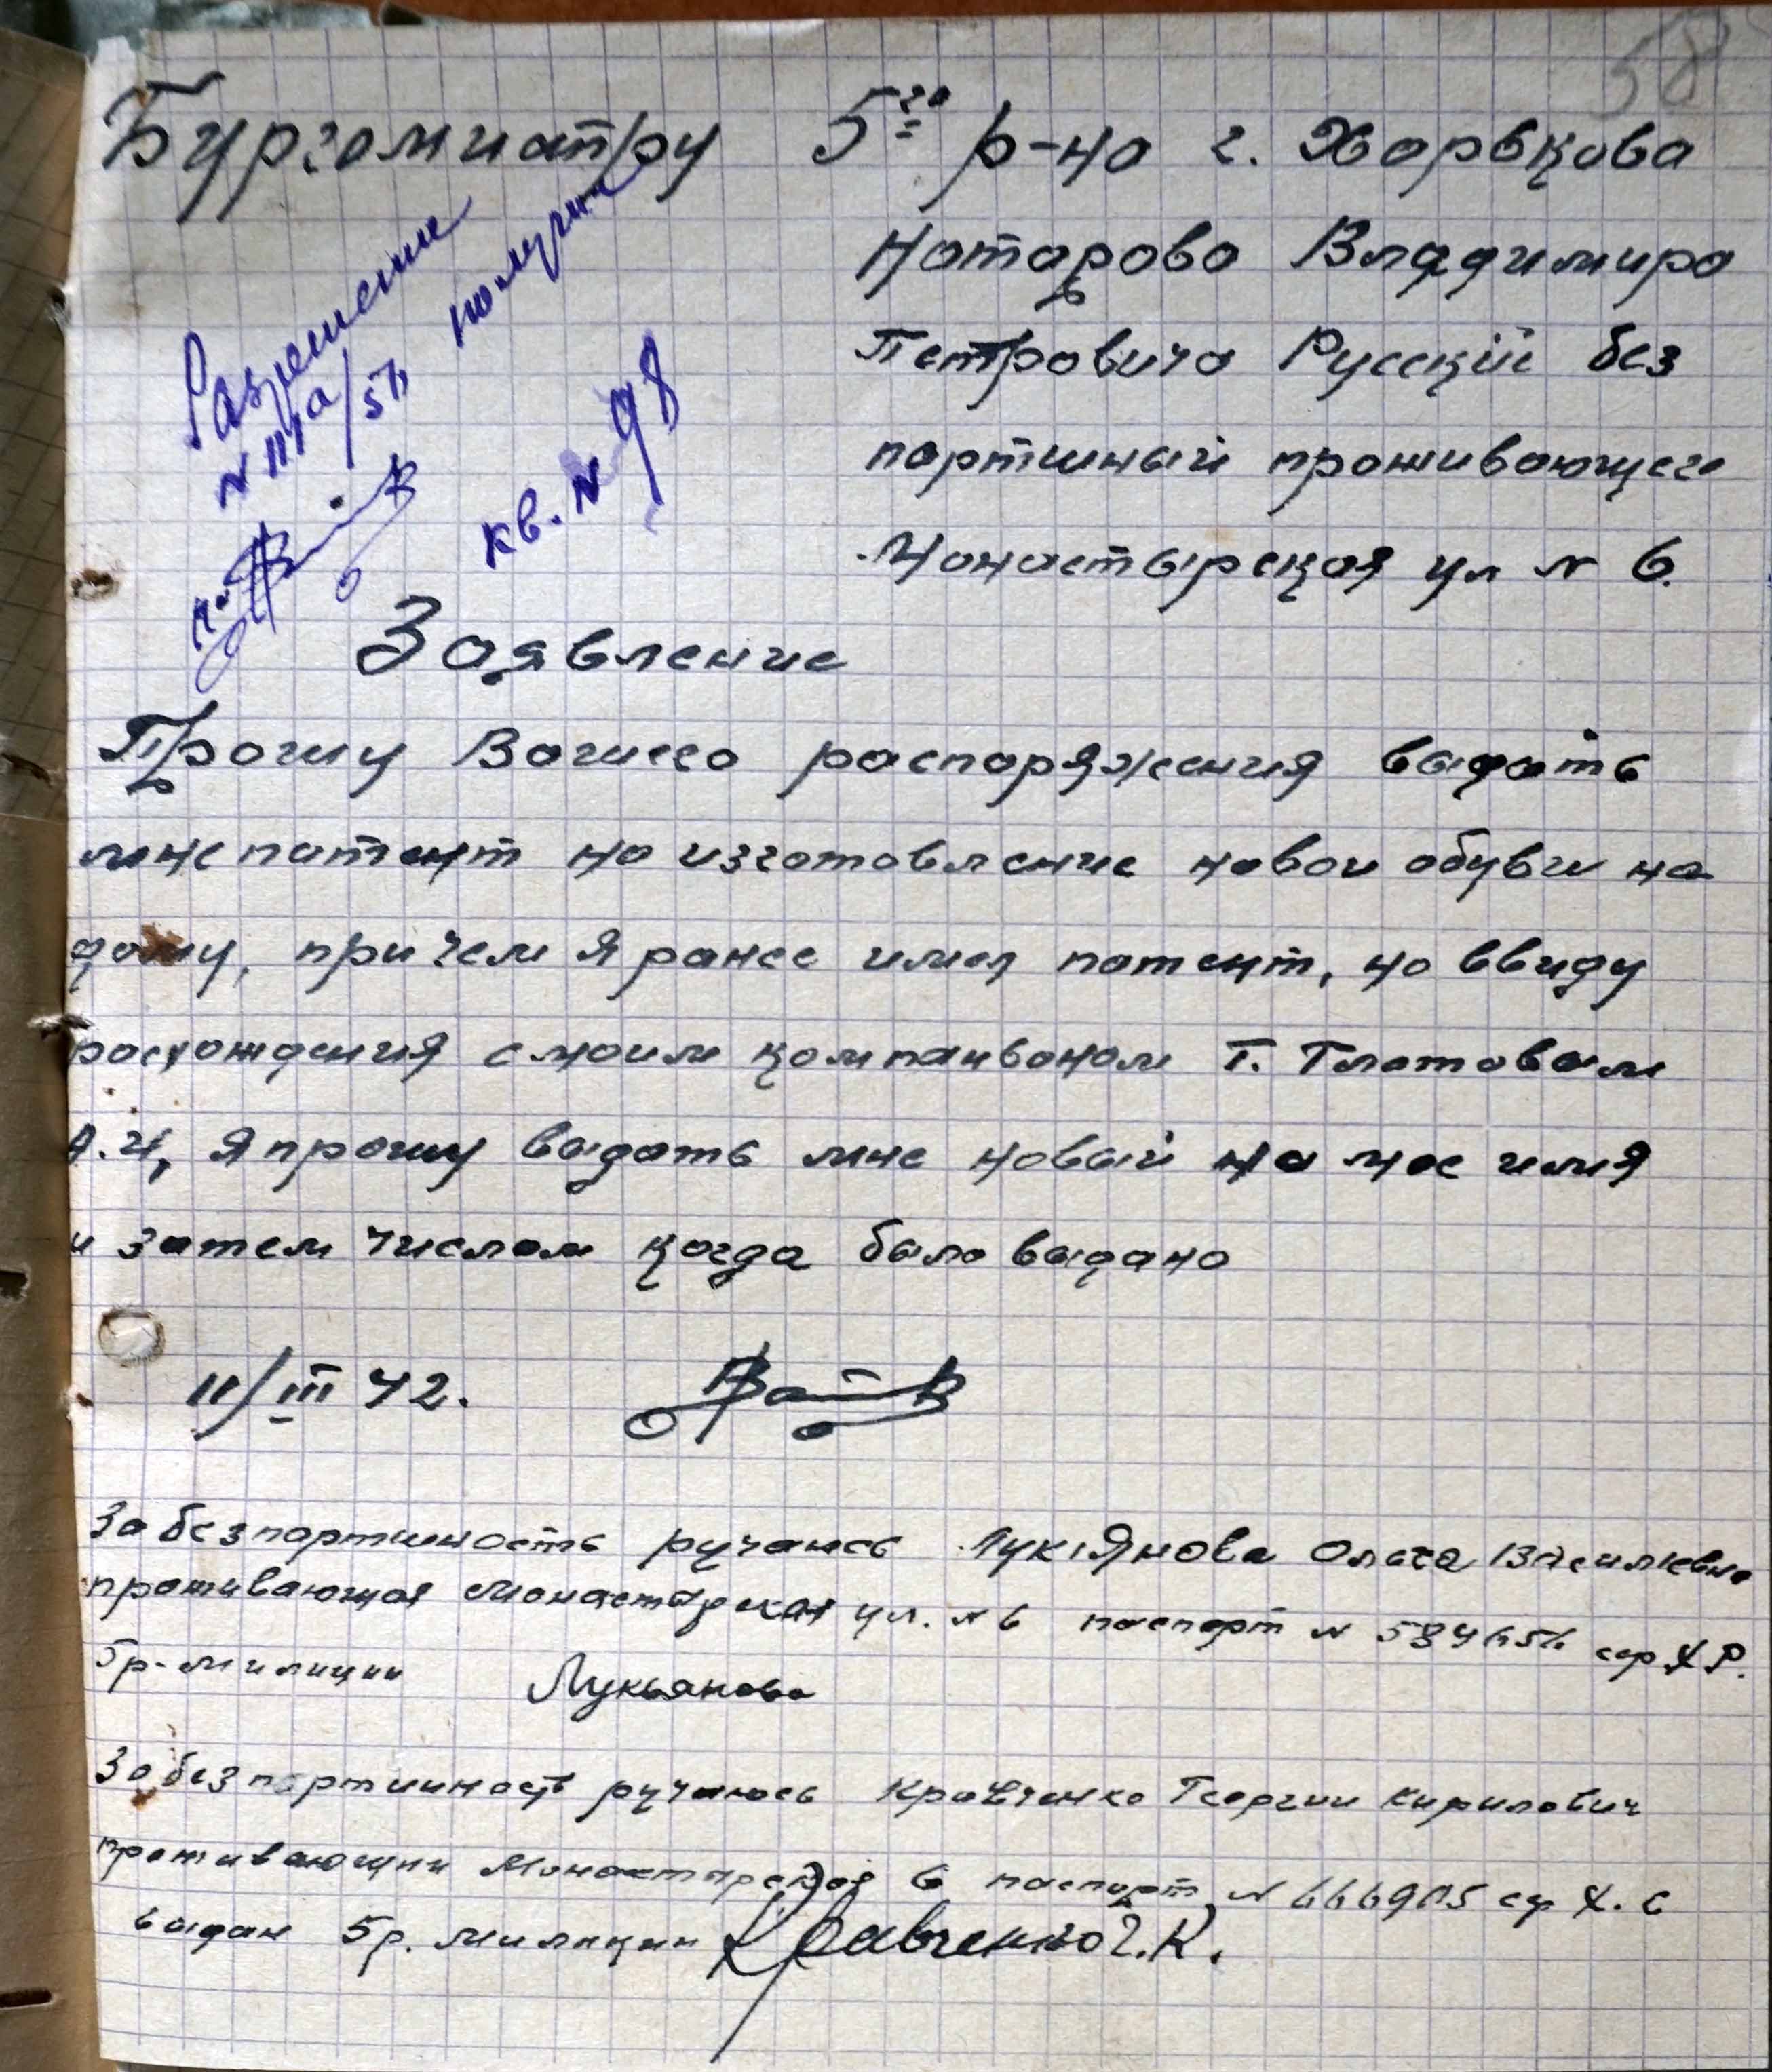 58
Бургомистру 5го р-на г. Харькова
Натарова Владимира
Петровича Русский без
партийный проживающего
Монастырская ул № 6.
Разрешение
получил
кв. № 98
Заявление
Прошу Вашего распоряжения выдать
мне патент на изготовление новой обуви на
дому, при чем я ранее имел патент, но ввиду
расхождения с моим компаньоном Т. Платовым
А.И, я прошу выдать мне новый на мое имя
и затем числом когда было выдано
11/III 42.
За безпартийность ручаюсь Лукіянова Ольга Васильевна
проживающая Монастырская ул. № 6 паспорт № сер ХР.
5р-милиции Лукьянова
За безпартийность ручаюсь Кравченко Георгий Кирилович
проживающий Монастирская 6 паспорт № 666905 сер Х. С
выдан 5р. милиции Кравченко Г.К.